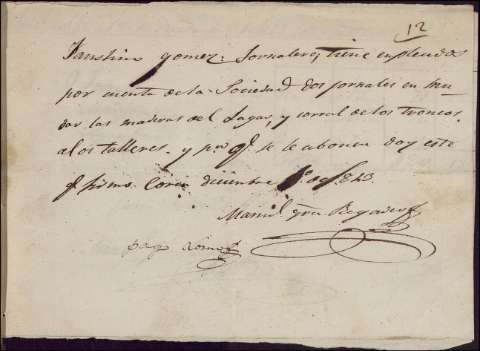 12
Faustino gomez. Jornalero, tiene enpleados
por cuenta de la Sociedad dos jornales en mu
dar las maderas del Lagar, y corral de los troncos,
a los talleres. y pa. q. se le abonen doy este
q. firmo. Coria diciembre 1º de 1843
Manuel
pago